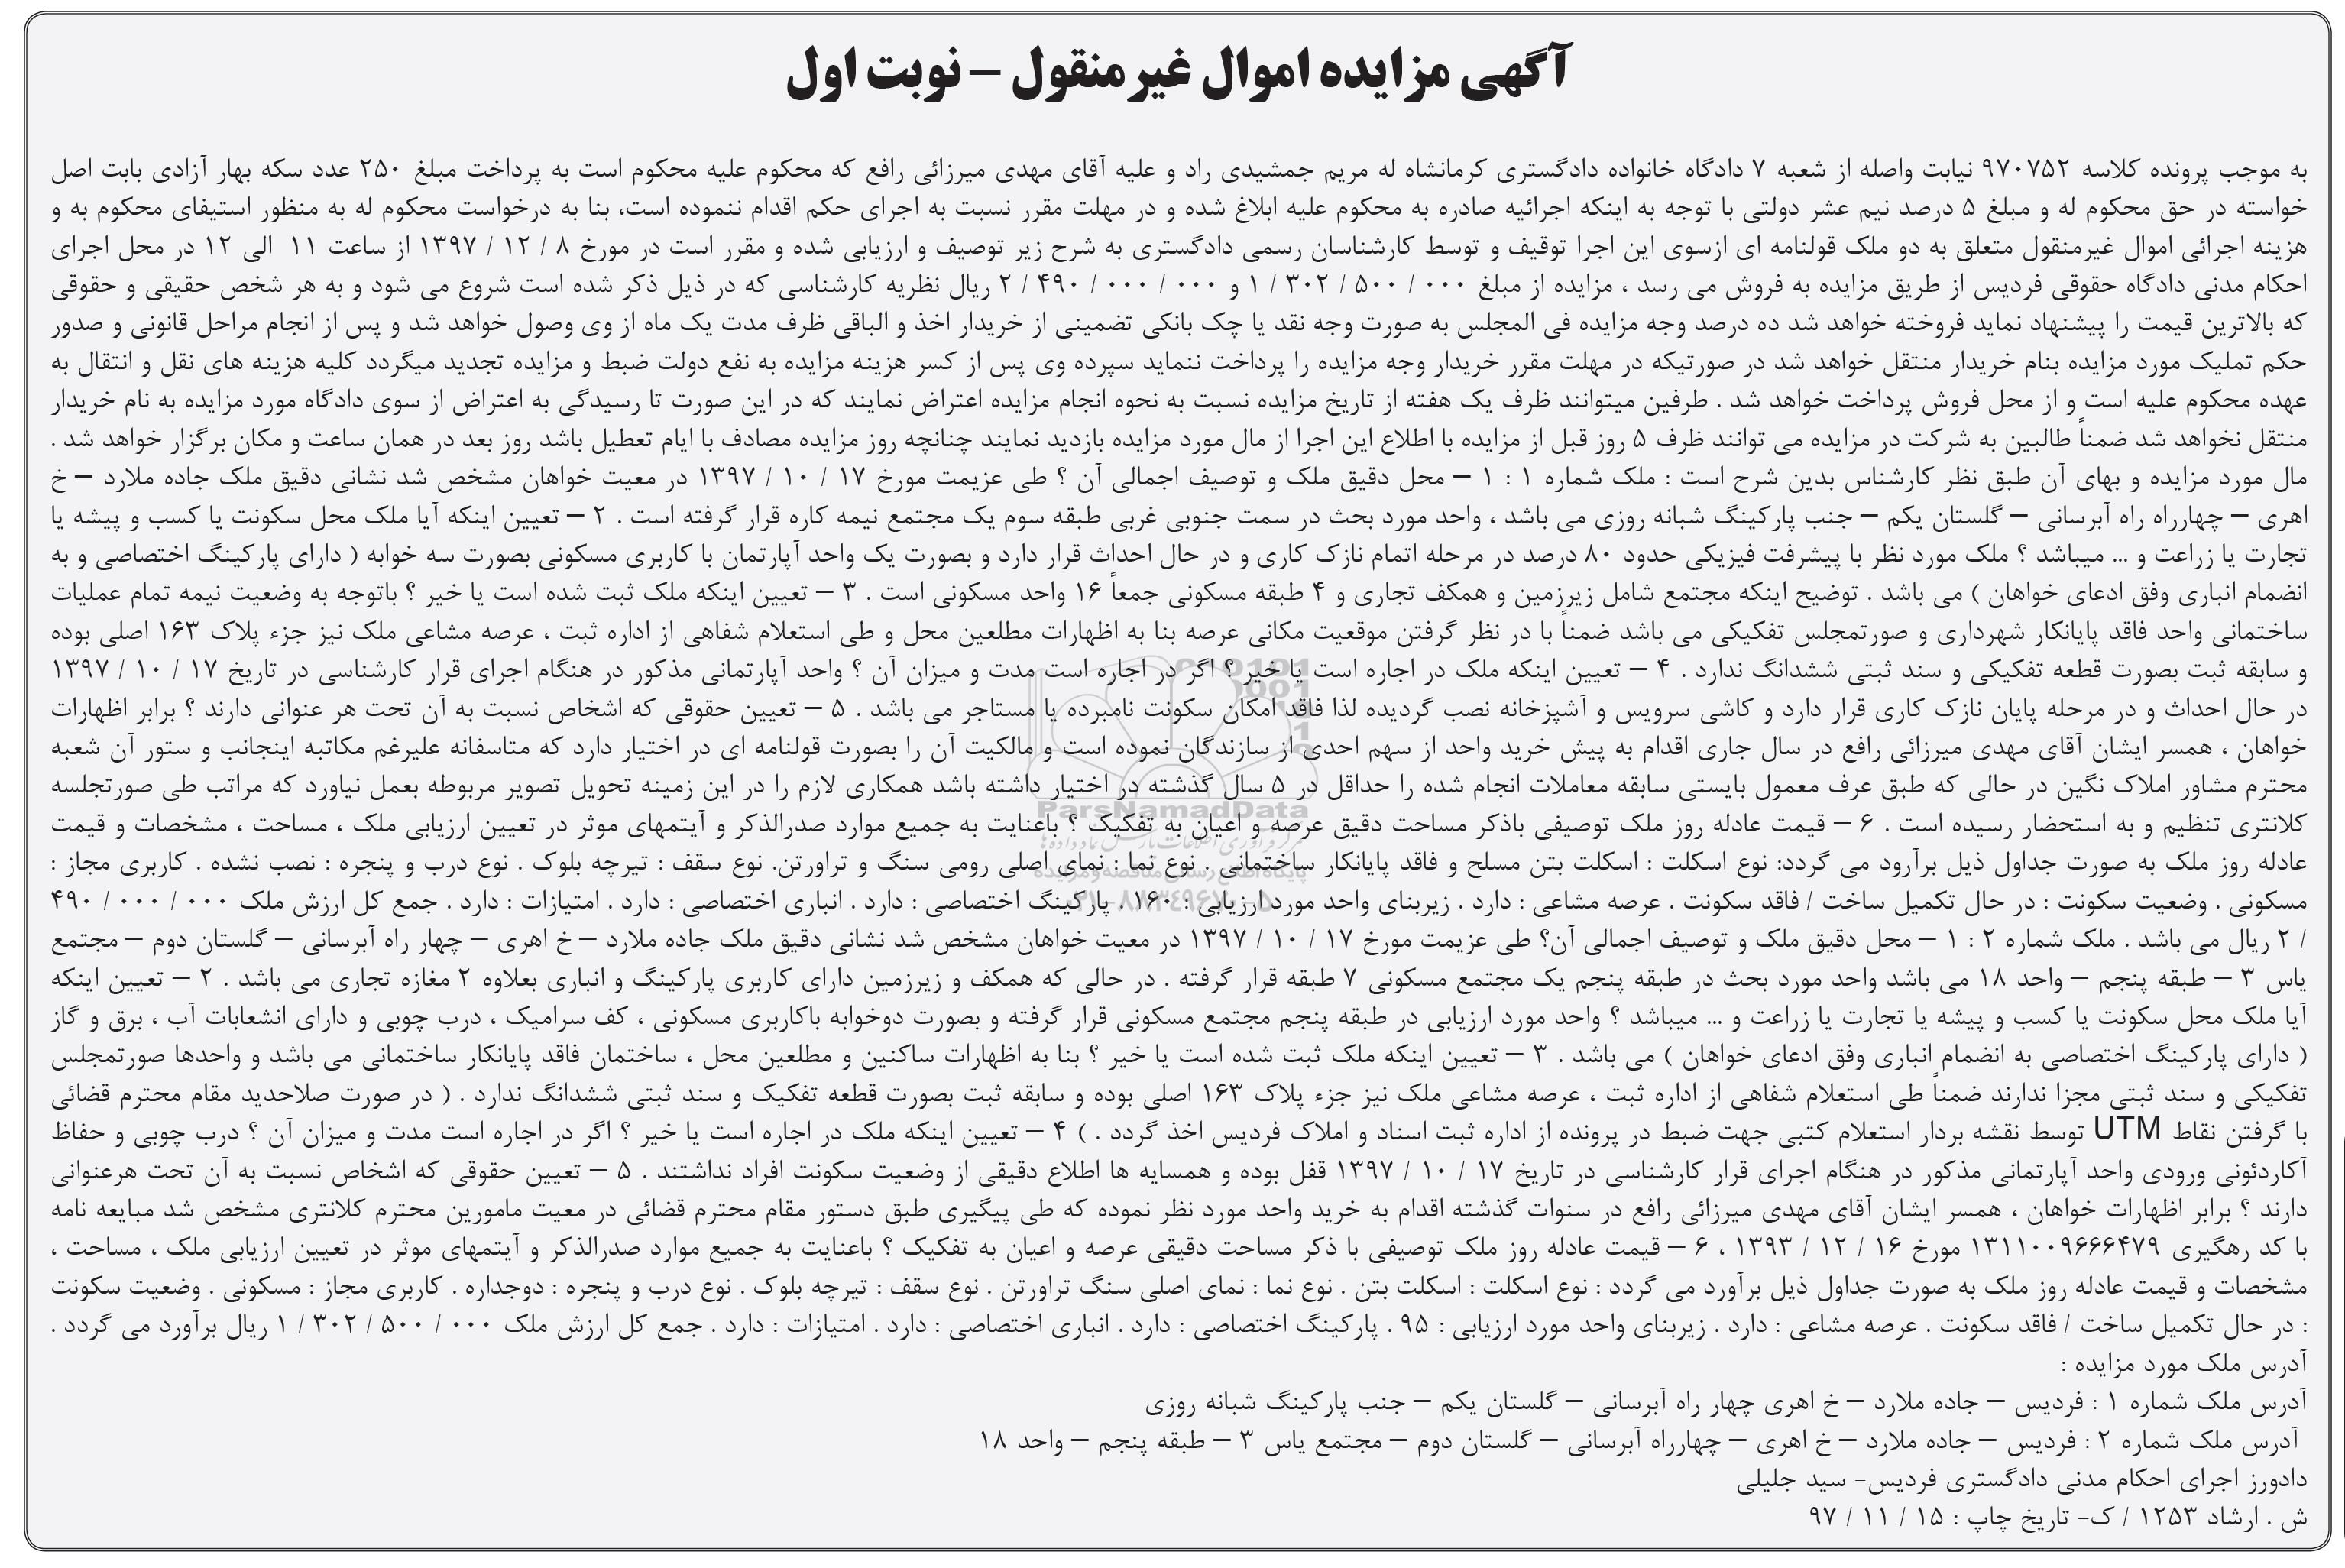 آگهی مزایده اموال غیرمنقول – نوبت اول
به موجب پرونده کلاسه ۹۷۰۷۵۲ نیابت واصله از شعبه ۷ دادگاه خانواده دادگستری کرمانشاه له مریم جمشیدی راد و علیه آقای مهدی میرزائی رافع که محکوم علیه محکوم است به پرداخت مبلغ ۲۵۰ عدد سکه بهار آزادی بابت اصل
خواسته در حق محکوم له و مبلغ ۵ درصد نیم عشر دولتی با توجه به اینکه اجرائیه صادره به محکوم علیه ابلاغ شده و در مهلت مقرر نسبت به اجرای حکم اقدام ننموده است، بنا به درخواست محکوم له به منظور استیفای محکوم به و
هزینه اجرائی اموال غیرمنقول متعلق به دو ملک قولنامه ای ازسوی این اجرا توقیف و توسط کارشناسان رسمی دادگستری به شرح زیر توصیف و ارزیابی شده و مقرر است در مورخ ۸ / ۱۲ / ۱۳۹۷ از ساعت ۱۱ الی ۱۲ در محل اجرای
احکام مدنی دادگاه حقوقی فردیس از طریق مزایده به فروش می رسد ، مزایده از مبلغ ۰۰۰ / ۵۰۰ / ۳۰۲ / ۱ و ۰۰۰ / ۰۰۰ / ۴۹۰ / ۲ ریال نظریه کارشناسی که در ذیل ذکر شده است شروع می شود و به هر شخص حقیقی و حقوقی
که بالاترین قیمت را پیشنهاد نماید فروخته خواهد شد ده درصد وجه مزایده فی المجلس به صورت وجه نقد یا چک بانکی تضمینی از خریدار اخذ و الباقی ظرف مدت یک ماه از وی وصول خواهد شد و پس از انجام مراحل قانونی و صدور
حکم تملیک مورد مزایده بنام خریدار منتقل خواهد شد در صورتیکه در مهلت مقرر خریدار وجه مزایده را پرداخت ننماید سپرده وی پس از کسر هزینه مزایده به نفع دولت ضبط و مزایده تجدید میگردد کلیه هزینه های نقل و انتقال به
عهده محکوم علیه است و از محل فروش پرداخت خواهد شد . طرفین میتوانند ظرف یک هفته از تاریخ مزایده نسبت به نحوه انجام مزایده اعتراض نمایند که در این صورت تا رسیدگی به اعتراض از سوی دادگاه مورد مزایده به نام خریدار
منتقل نخواهد شد ضمناً طالبین به شرکت در مزایده می توانند ظرف ۵ روز قبل از مزایده با اطلاع این اجرا از مال مورد مزایده بازدید نمایند چنانچه روز مزایده مصادف با ایام تعطیل باشد روز بعد در همان ساعت و مکان برگزار خواهد شد .
مال مورد مزایده و بهای آن طبق نظر کارشناس بدین شرح است : ملک شماره ۱ : ۱ – محل دقیق ملک و توصیف اجمالی آن ؟ طی عزیمت مورخ ۱۷ / ۱۰ / ۱۳۹۷ در معیت خواهان مشخص شد نشانی دقیق ملک جاده ملارد – خ
اهری – چهارراه راه آبرسانی – گلستان یکم – جنب پارکینگ شبانه روزی می باشد ، واحد مورد بحث در سمت جنوبی غربی طبقه سوم یک مجتمع نیمه کاره قرار گرفته است . ۲ – تعیین اینکه آیا ملک محل سکونت یا کسب و پیشه یا
تجارت یا زراعت و ... میباشد ؟ ملک مورد نظر با پیشرفت فیزیکی حدود ۸۰ درصد در مرحله اتمام نازک کاری و در حال احداث قرار دارد و بصورت یک واحد آپارتمان با کاربری مسکونی بصورت سه خوابه ( دارای پارکینگ اختصاصی و به
انضمام انباری وفق ادعای خواهان ) می باشد . توضیح اینکه مجتمع شامل زیرزمین و همکف تجاری و ۴ طبقه مسکونی جمعاً ۱۶ واحد مسکونی است . ۳ – تعیین اینکه ملک ثبت شده است یا خیر ؟ باتوجه به وضعیت نیمه تمام عملیات
ساختمانی واحد فاقد پایانکار شهرداری و صورتمجلس تفکیکی می باشد ضمناً با در نظر گرفتن موقعیت مکانی عرصه بنا به اظهارات مطلعین محل و طی استعلام شفاهی از اداره ثبت ، عرصه مشاعی ملک نیز جزء پلاک ۱۶۳ اصلی بوده
و سابقه ثبت بصورت قطعه تفکیکی و سند ثبتی ششدانگ ندارد . ۴ – تعیین اینکه ملک در اجاره است یا خیر ؟ اگر در اجاره است مدت و میزان آن ؟ واحد آپارتمانی مذکور در هنگام اجرای قرار کارشناسی در تاریخ ۱۷ / ۱۰ / ۱۳۹۷
در حال احداث و در مرحله پایان نازک کاری قرار دارد و کاشی سرویس و آشپزخانه نصب گردیده لذا فاقد امکان سکونت نامبرده یا مستاجر می باشد . ۵ – تعیین حقوقی که اشخاص نسبت به آن تحت هر عنوانی دارند ؟ برابر اظهارات
خواهان ، همسر ایشان آقای مهدی میرزائی رافع در سال جاری اقدام به پیش خرید واحد از سهم احدی از سازندگان نموده است و مالکیت آن را بصورت قولنامه ای در اختیار دارد که متاسفانه علیرغم مکاتبه اینجانب و ستور آن شعبه
محترم مشاور املاک نگین در حالی که طبق عرف معمول بایستی سابقه معاملات انجام شده را حداقل در ۵ سال گذشته در اختیار داشته باشد همکاری لازم را در این زمینه تحویل تصویر مربوطه بعمل نیاورد که مراتب طی صورتجلسه
کلانتری تنظیم و به استحضار رسیده است . ۶ – قیمت عادله روز ملک توصیفی باذکر مساحت دقیق عرصه و اعیان به تفکیک ؟ باعنایت به جمیع موارد صدرالذکر و آیتمهای موثر در تعیین ارزیابی ملک ، مساحت ، مشخصات و قیمت
عادله روز ملک به صورت جداول ذیل برآورد می گردد: نوع اسکلت : اسکلت بتن مسلح و فاقد پایانکار ساختمانی . نوع نما : نمای اصلی رومی سنگ و تراورتن. نوع سقف : تیرچه بلوک . نوع درب و پنجره : نصب نشده . کاربری مجاز :
مسکونی . وضعیت سکونت : در حال تکمیل ساخت / فاقد سکونت . عرصه مشاعی : دارد . زیربنای واحد مورد ارزیابی : ۱۶۰ . پارکینگ اختصاصی : دارد . انباری اختصاصی : دارد . امتیازات : دارد . جمع کل ارزش ملک ۰۰۰ / ۰۰۰ / ۴۹۰
/ ۲ ریال می باشد . ملک شماره ۲ : ۱ – محل دقیق ملک و توصیف اجمالی آن؟ طی عزیمت مورخ ۱۷ / ۱۰ / ۱۳۹۷ در معیت خواهان مشخص شد نشانی دقیق ملک جاده ملارد – خ اهری – چهار راه آبرسانی – گلستان دوم – مجتمع
یاس ۳ – طبقه پنجم – واحد ۱۸ می باشد واحد مورد بحث در طبقه پنجم یک مجتمع مسکونی ۷ طبقه قرار گرفته . در حالی که همکف و زیرزمین دارای کاربری پارکینگ و انباری بعلاوه ۲ مغازه تجاری می باشد . ۲ – تعیین اینکه
آیا ملک محل سکونت یا کسب و پیشه یا تجارت یا زراعت و ... میباشد ؟ واحد مورد ارزیابی در طبقه پنجم مجتمع مسکونی قرار گرفته و بصورت دوخوابه باکاربری مسکونی ، کف سرامیک ، درب چوبی و دارای انشعابات آب ، برق و گاز
( دارای پارکینگ اختصاصی به انضمام انباری وفق ادعای خواهان ) می باشد . ۳ – تعیین اینکه ملک ثبت شده است یا خیر ؟ بنا به اظهارات ساکنین و مطلعین محل ، ساختمان فاقد پایانکار ساختمانی می باشد و واحدها صورتمجلس
تفکیکی و سند ثبتی مجزا ندارند ضمناً طی استعلام شفاهی از اداره ثبت ، عرصه مشاعی ملک نیز جزء پلاک ۱۶۳ اصلی بوده و سابقه ثبت بصورت قطعه تفکیک و سند ثبتی ششدانگ ندارد . ( در صورت صلاحدید مقام محترم قضائی
با گرفتن نقاط UTM توسط نقشه بردار استعلام کتبی جهت ضبط در پرونده از اداره ثبت اسناد و املاک فردیس اخذ گردد . ) ۴ – تعیین اینکه ملک در اجاره است یا خیر ؟ اگر در اجاره است مدت و میزان آن ؟ درب چوبی و حفاظ
آکاردئونی ورودی واحد آپارتمانی مذکور در هنگام اجرای قرار کارشناسی در تاریخ ۱۷ / ۱۰ / ۱۳۹۷ قفل بوده و همسایه ها اطلاع دقیقی از وضعیت سکونت افراد نداشتند . ۵ – تعیین حقوقی که اشخاص نسبت به آن تحت هرعنوانی
دارند ؟ برابر اظهارات خواهان ، همسر ایشان آقای مهدی میرزائی رافع در سنوات گذشته اقدام به خرید واحد مورد نظر نموده که طی پیگیری طبق دستور مقام محترم قضائی در معیت مامورین محترم کلانتری مشخص شد مبایعه نامه
با کد رهگیری ۱۳۱۱۰۰۹۶۶۶۴۷۹ مورخ ۱۶ / ۱۲ / ۱۳۹۳ ، ۶ – قیمت عادله روز ملک توصیفی با ذکر مساحت دقیقی عرصه و اعیان به تفکیک ؟ باعنایت به جمیع موارد صدرالذکر و آیتمهای موثر در تعیین ارزیابی ملک ، مساحت ،
مشخصات و قیمت عادله روز ملک به صورت جداول ذیل برآورد می گردد : نوع اسکلت : اسکلت بتن . نوع نما : نمای اصلی سنگ تراورتن . نوع سقف : تیرچه بلوک . نوع درب و پنجره : دوجداره . کاربری مجاز : مسکونی . وضعیت سکونت
: در حال تکمیل ساخت / فاقد سکونت . عرصه مشاعی : دارد . زیربنای واحد مورد ارزیابی : ۹۵ . پارکینگ اختصاصی : دارد . انباری اختصاصی : دارد . امتیازات : دارد . جمع کل ارزش ملک ۰۰۰ / ۵۰۰ / ۳۰۲ / ۱ ریال برآورد می گردد .
آدرس ملک مورد مزایده :
آدرس ملک شماره ۱ : فردیس – جاده ملارد – خ اهری چهار راه آبرسانی – گلستان یکم – جنب پارکینگ شبانه روزی
آدرس ملک شماره ۲ : فردیس – جاده ملارد – خ اهری – چهارراه آبرسانی – گلستان دوم – مجتمع یاس ۳ – طبقه پنجم – واحد ۱۸
دادورز اجرای احکام مدنی دادگستری فردیس- سید جلیلی
ش . ارشاد ۱۲۵۳ / ک- تاریخ چاپ : ۱۵ / ۱۱ / ۹۷
ParsNamadData